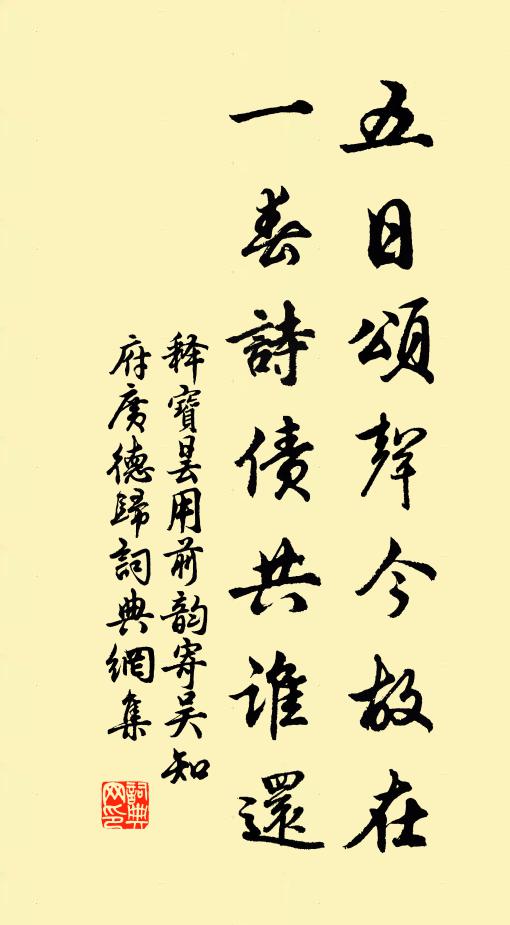 五日頌聲今故在
一春詩債共誰還
釋寶曇用前韵寄吴知
府廣德歸詞典網集
詞典
网印